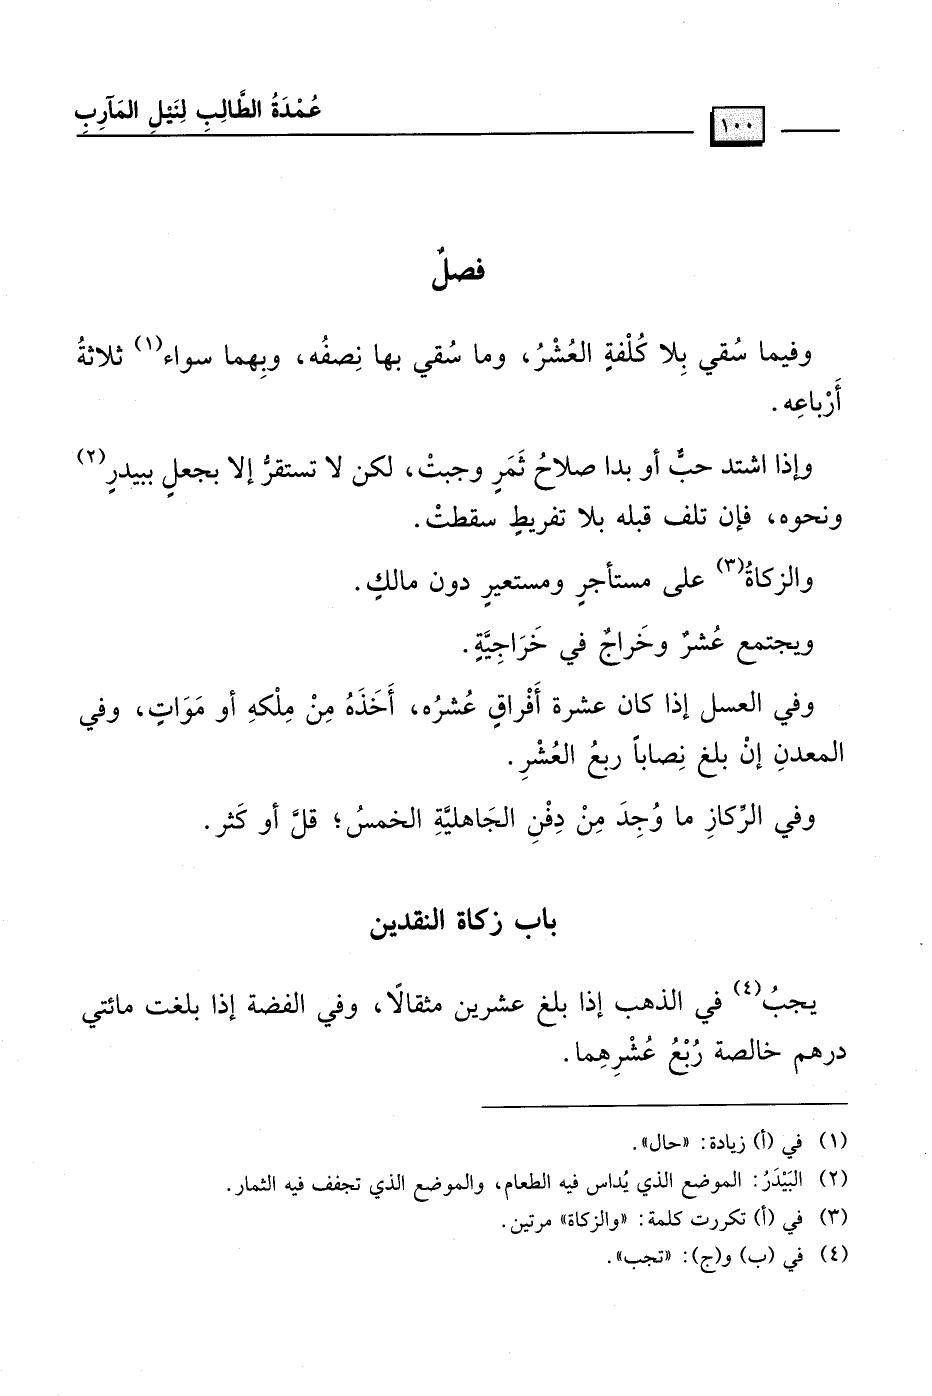 عُمْدَةُ الطَّالِبِ لِنَيْلِ المَآرِبِ
١٠٠
فصلٌ
وفيما سُقي بِلا كُلْفةٍ العُشْرُ، وما سُقي بها نِصفُه، وبِهما سواء(١) ثلاثةُ
أَرْباعِه.
وإذا اشتد حبٌّ أو بدا صلاحُ ثَمَرٍ وجبتْ، لكن لا تستقرُّ إلا بجعلٍ ببيدرٍ(٢)
ونحوه، فإن تلف قبله بلا تفريطٍ سقطتْ.
والزكاةُ(٣) على مستأجرٍ ومستعيرٍ دون مالكٍ.
ويجتمع عُشرٌ وخَراجٌ في خَرَاجِيَّةٍ.
وفي العسل إذا كان عشرة أَفْراقٍ عُشرُه، أَخَذَهُ مِنْ مِلْكهِ أو مَوَاتٍ، وفي
المعدنِ إنْ بلغ نِصاباً ربعُ العُشْرِ.
وفي الرِّكازِ ما وُجِدَ مِنْ دِفْنِ الجَاهليَّةِ الخمسُ؛ قلَّ أو كَثر.
باب زكاة النقدين
يجبُ(٤) في الذهب إذا بلغ عشرين مثقالًا، وفي الفضة إذا بلغت مائتي
درهم خالصة رُبْعُ عُشْرِهِما.
(١) في (أ) زيادة: «حال».
(٢) البَيْدَرُ: الموضع الذي يُداس فيه الطعام، والموضع الذي تجفف فيه الثمار.
(٣) في (أ) تكررت كلمة: «والزكاة» مرتين.
(٤) في (ب) و(ج): «تجب».